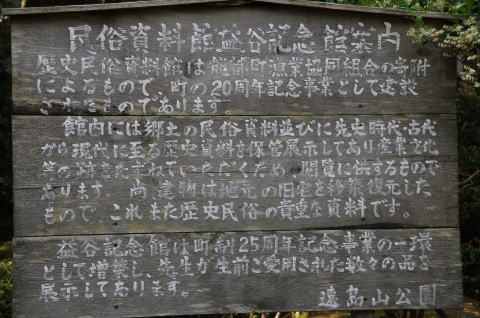 民俗資料館益谷記念館案内
歴史民俗資料館は能都町漁業協同組合の寄附
によるもので、町の20周年記念事業として建設
されたものであります。
館内には郷土の民俗資料並びに先史時代・古代
から現代に至る歴史資料を保管展示してあり産業文化
等の

ただくため、閲覧に供するもので
あります。尚、建物は地元の旧宅を移築復元した
もので、これまた歴史民俗の貴重な資料です。
益谷記念館は町制25周年記念事業の一環
として増築し、先生が生前ご愛用された数々の品を
展示しております。
遠島山公園